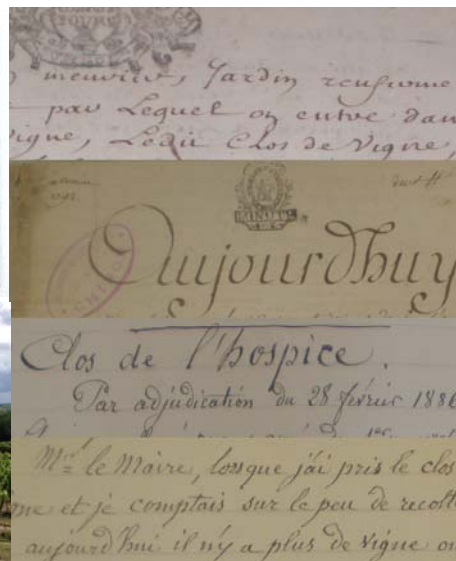 Jardin renferme
par Lequel on entre dan
vigne, Ledit Clos de Vigne,
MINUTE
Aujourd'huy
Clos de l'hospice.
Par adjudication du 28 février 1886
Mr le Maire, lorsque j'ai pris le clos
me et je comptais sur le peu de recolt
aujourd'hui il n'y a plus de vigne ou